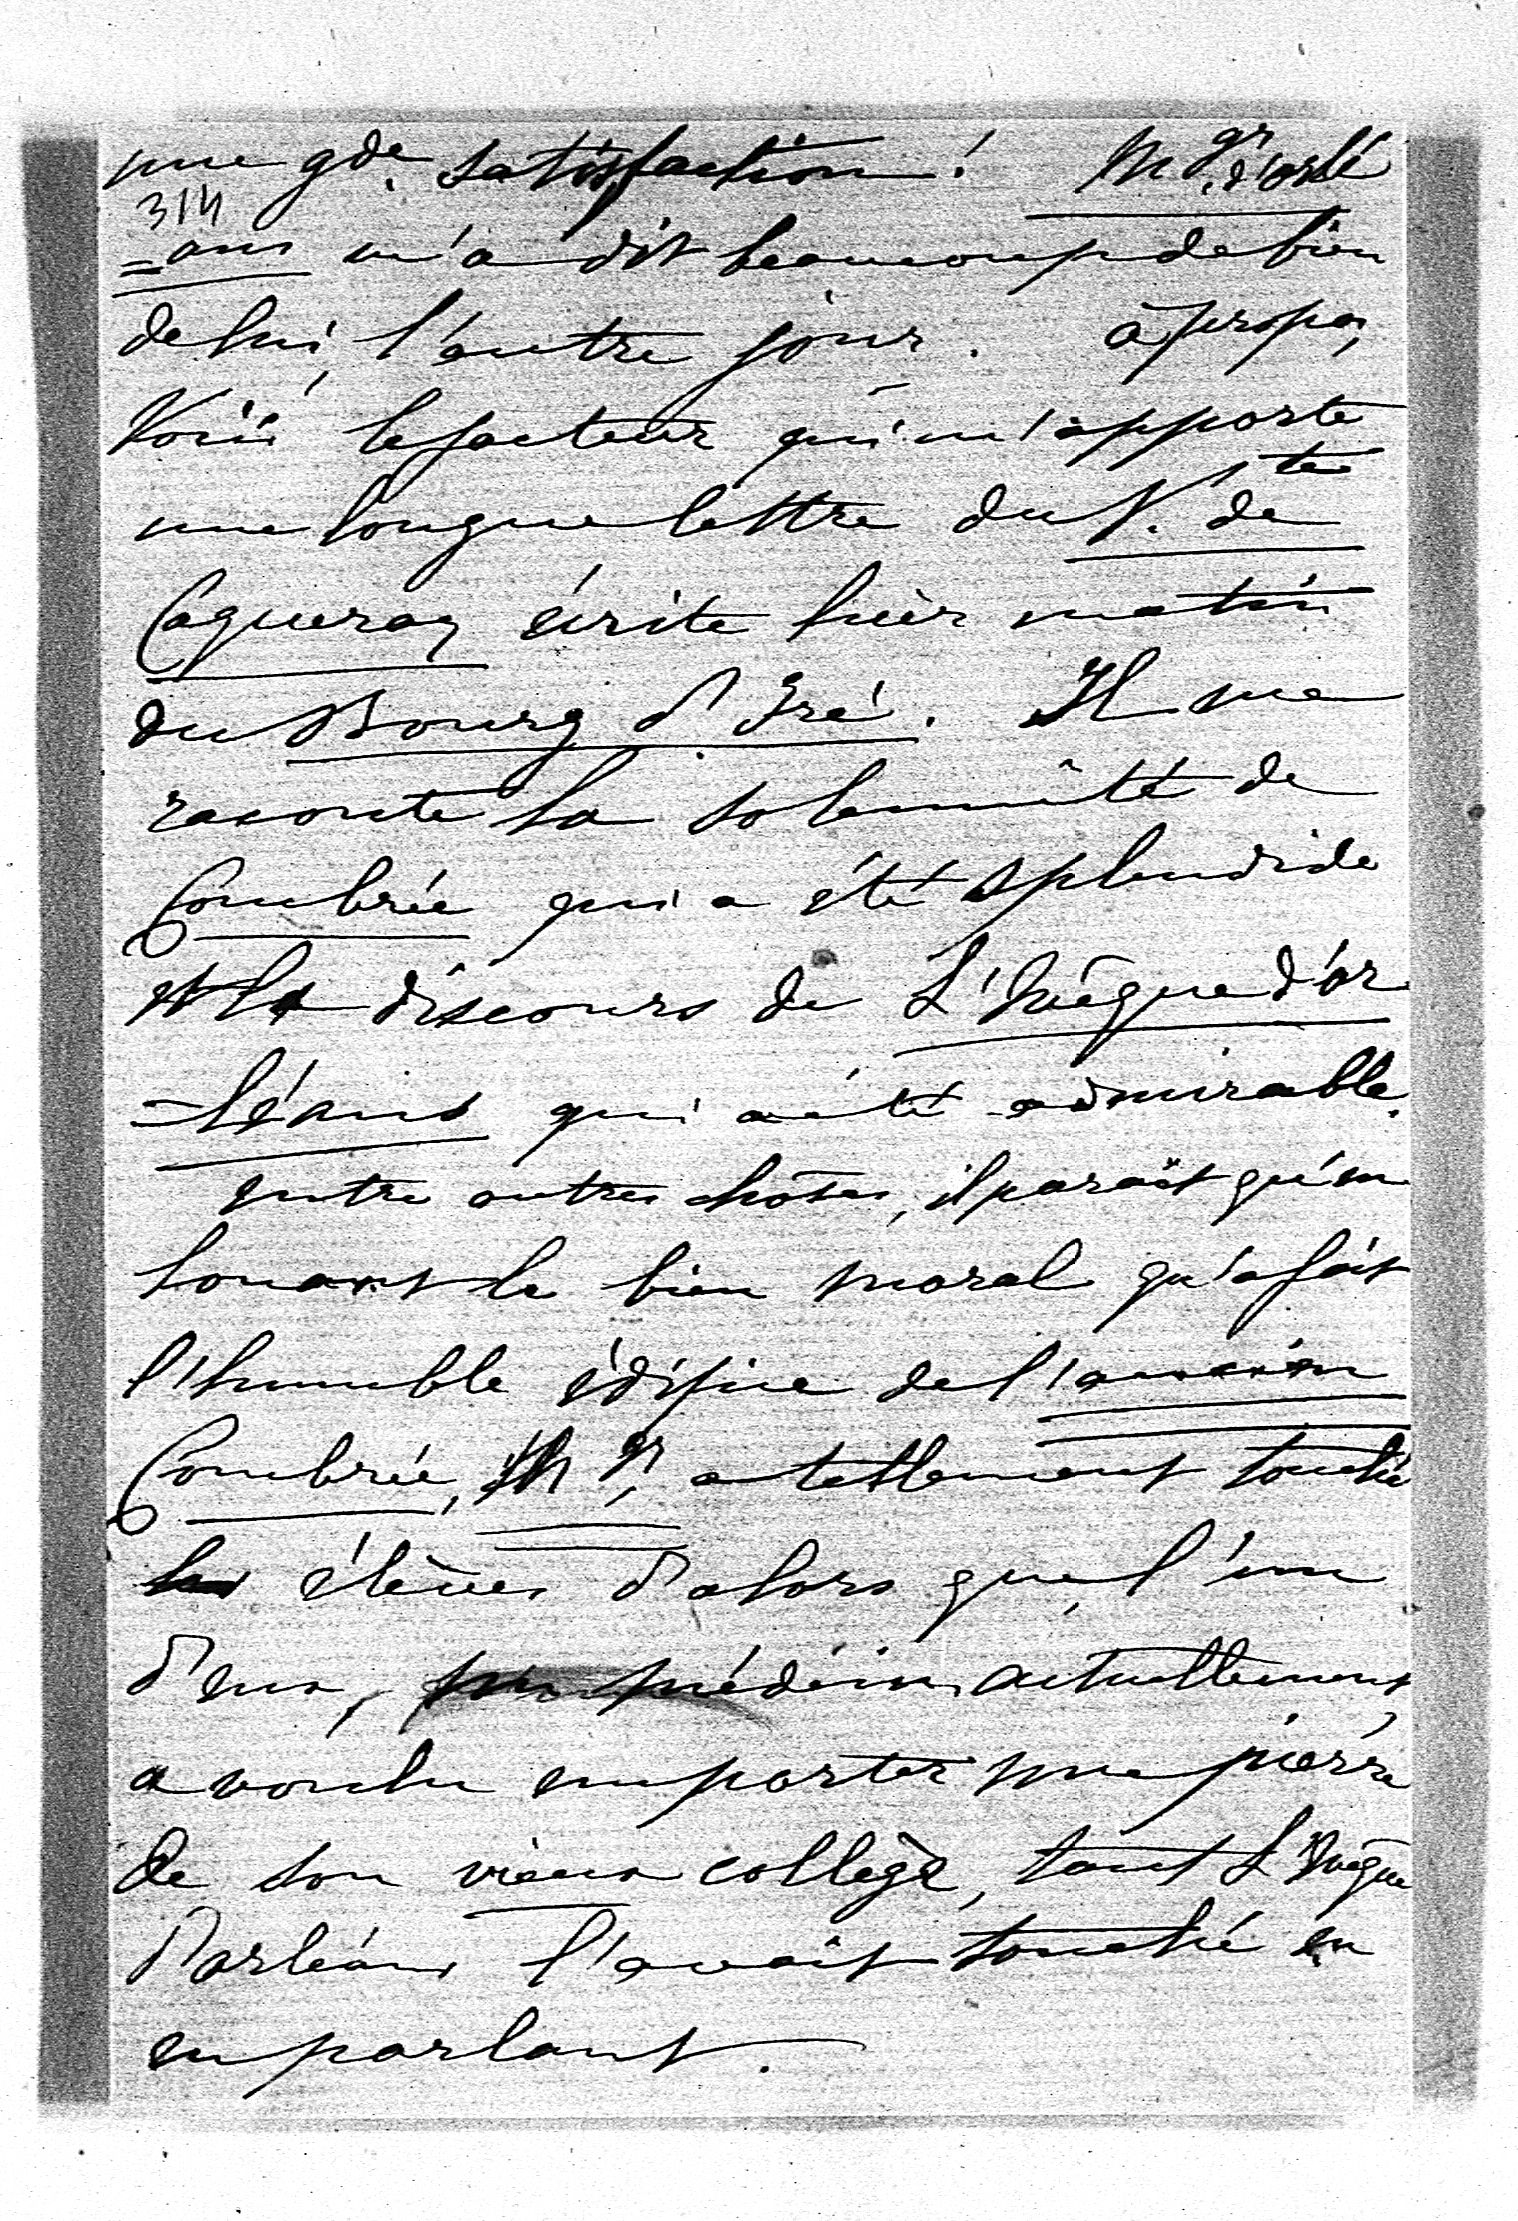 une gde. satisfaction! Mgr. d'orlé
314
=ans m'a dit beaucoup de bien
de lui, l'autre jour. à propos,
Voici le facteur qui m'apporte
une longue lettre du V.te de
Caqueray écrite hier matin
du Bourg d'Iré. Il me
raconte la solennité de
Combrée qui a été splendide
et le discours de L'Evêque d'or
=léans qui a été admirable.
entre autres choses, il paraît qu'en
louant le bien moral qu'a fait
l'humble édifice de l'ancien
Combrée, Mgr, a tellement touché
les élèves d'alors que, l'un
d'eux, un médecin actuellement,
a voulu emporter une pierre
de son vieux collège, tant L'Evêque
d'orléans l'avait touché en
en parlant.